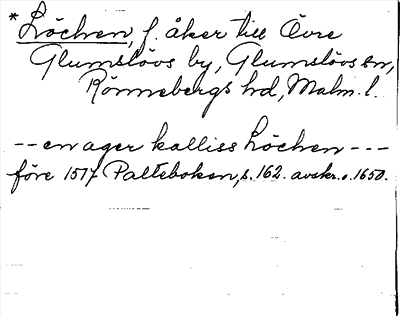 * Löchen, f. åker till Övre
Glumslövs by, Glumslövs sn,
Rönnebergs hd, Malm. l.
-- en ager kalliss Löchen ---
före 1517 Palteboken, s. 162. avskr. o. 1650.